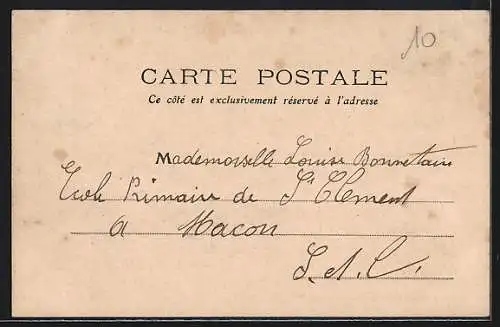 10
CARTE POSTALE
Ce côté est exclusivement réservé à l'adresse
Mademoiselle Louise Bonnetain
Ecole Primaire de St Clement
a Macon
S. et L.